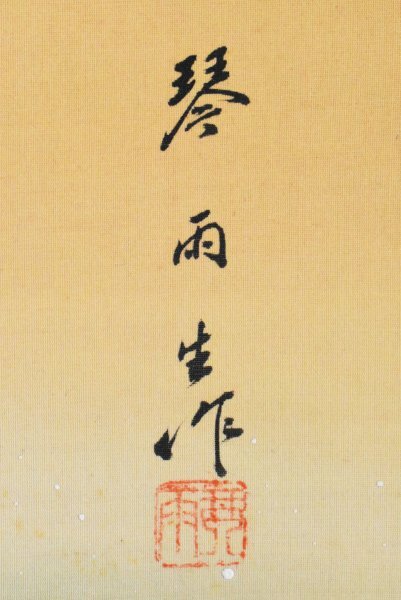 琴雨生作